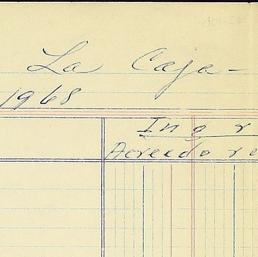 La Caja -
1968
Ingr
Acreedore